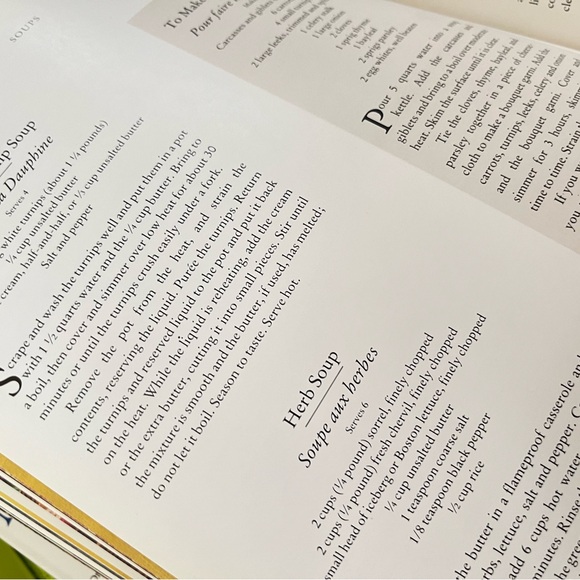 SOUPS
Soup
a Dauphine
Serves 4
white turnips (about 1 ¼ pounds)
¼ cup unsalted butter
cream, half-and-half, or ⅓ cup unsalted butter
Salt and pepper
Scrape and wash the turnips well and put them in a pot
with 1 ½ quarts water and the ¼ cup butter. Bring to
a boil, then cover and simmer over low heat for about 30
minutes or until the turnips crush easily under a fork.
Remove the pot from the heat, and strain the
contents, reserving the liquid. Purée the turnips. Return
the turnips and reserved liquid to the pot and put it back
on the heat. While the liquid is reheating, add the cream
or the extra butter, cutting it into small pieces. Stir until
the mixture is smooth and the butter, if used, has melted;
do not let it boil. Season to taste. Serve hot.
To Make
Pour faire
Carcasses and giblets
2 large leeks, trimmed and
1 celery stalk
1 large onion
2 cloves
1 sprig thyme
1 bay leaf
2 sprigs parsley
2 egg whites, well beaten
Pour 5 quarts water into
kettle. Add the carcasses
giblets and bring to a boil over moderate
heat. Skim the surface until it is clear.
Tie the cloves, thyme, bayleaf, and
parsley together in a piece of cheese
cloth to make a bouquet garni. Add the
carrots, turnips, leeks, celery and onion
and the bouquet garni. Cover and
simmer for 3 hours, skimming
time to time. Strain
If you
Herb Soup
Soupe aux herbes
Serves 6
2 cups (¼ pound) sorrel, finely chopped
2 cups (¼ pound) fresh chervil, finely chopped
small head of iceberg or Boston lettuce, finely chopped
¼ cup unsalted butter
1 teaspoon coarse salt
1/8 teaspoon black pepper
½ cup rice
the butter in a flameproof casserole
lettuce, salt and pepper.
add 6 cups hot water
minutes. Rinse